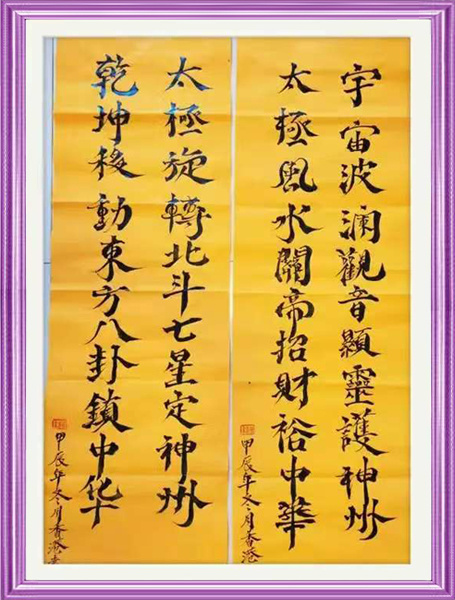 宇宙波澜觀音顯靈護神州
太極風水關帝招財裕中華
甲辰年冬月香港
太極旋轉北斗七星定神州
乾坤移動東方八卦鎖中华
甲辰年冬月香港